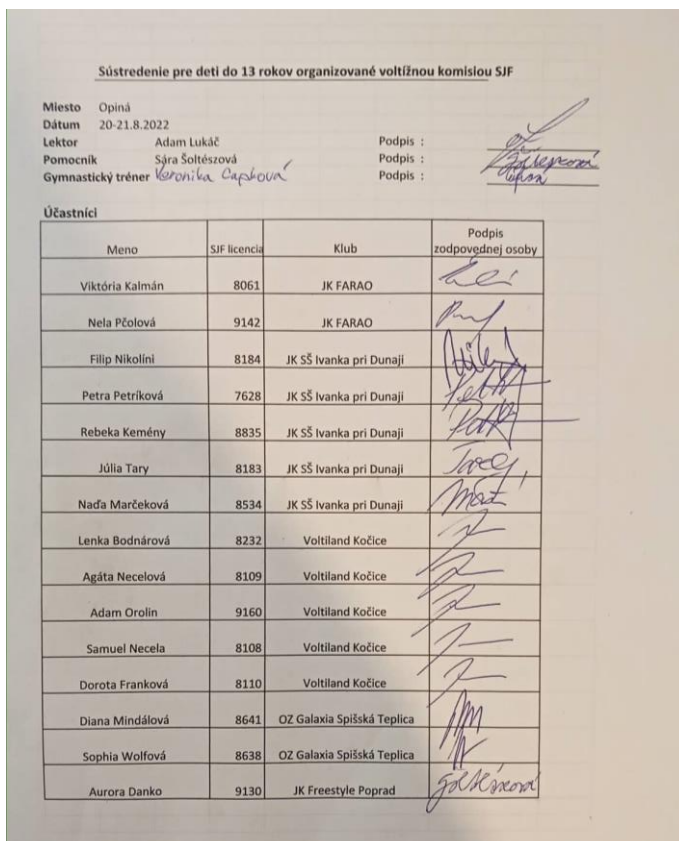 Sústredenie pre deti do 13 rokov organizované voltížnou komisiou SJF
Miesto Opiná
Dátum 20-21.8.2022
Lektor Adam Lukáč Podpis :
Pomocník Sára Šoltészová Podpis : Šoltészová
Gymnastický tréner Veronika Capková Podpis :
Účastníci
Meno SJF licencia Klub Podpis zodpovednej osoby
Viktória Kalmán 8061 JK FARAO
Nela Pčolová 9142 JK FARAO
Filip Nikolíni 8184 JK SŠ Ivanka pri Dunaji
Petra Petríková 7628 JK SŠ Ivanka pri Dunaji
Rebeka Kemény 8835 JK SŠ Ivanka pri Dunaji
Júlia Tary 8183 JK SŠ Ivanka pri Dunaji
Naďa Marčeková 8534 JK SŠ Ivanka pri Dunaji
Lenka Bodnárová 8232 Voltiland Kočice
Agáta Necelová 8109 Voltiland Kočice
Adam Orolin 9160 Voltiland Kočice
Samuel Necela 8108 Voltiland Kočice
Dorota Franková 8110 Voltiland Kočice
Diana Mindálová 8641 OZ Galaxia Spišská Teplica
Sophia Wolfová 8638 OZ Galaxia Spišská Teplica
Aurora Danko 9130 JK Freestyle Poprad Šoltészová